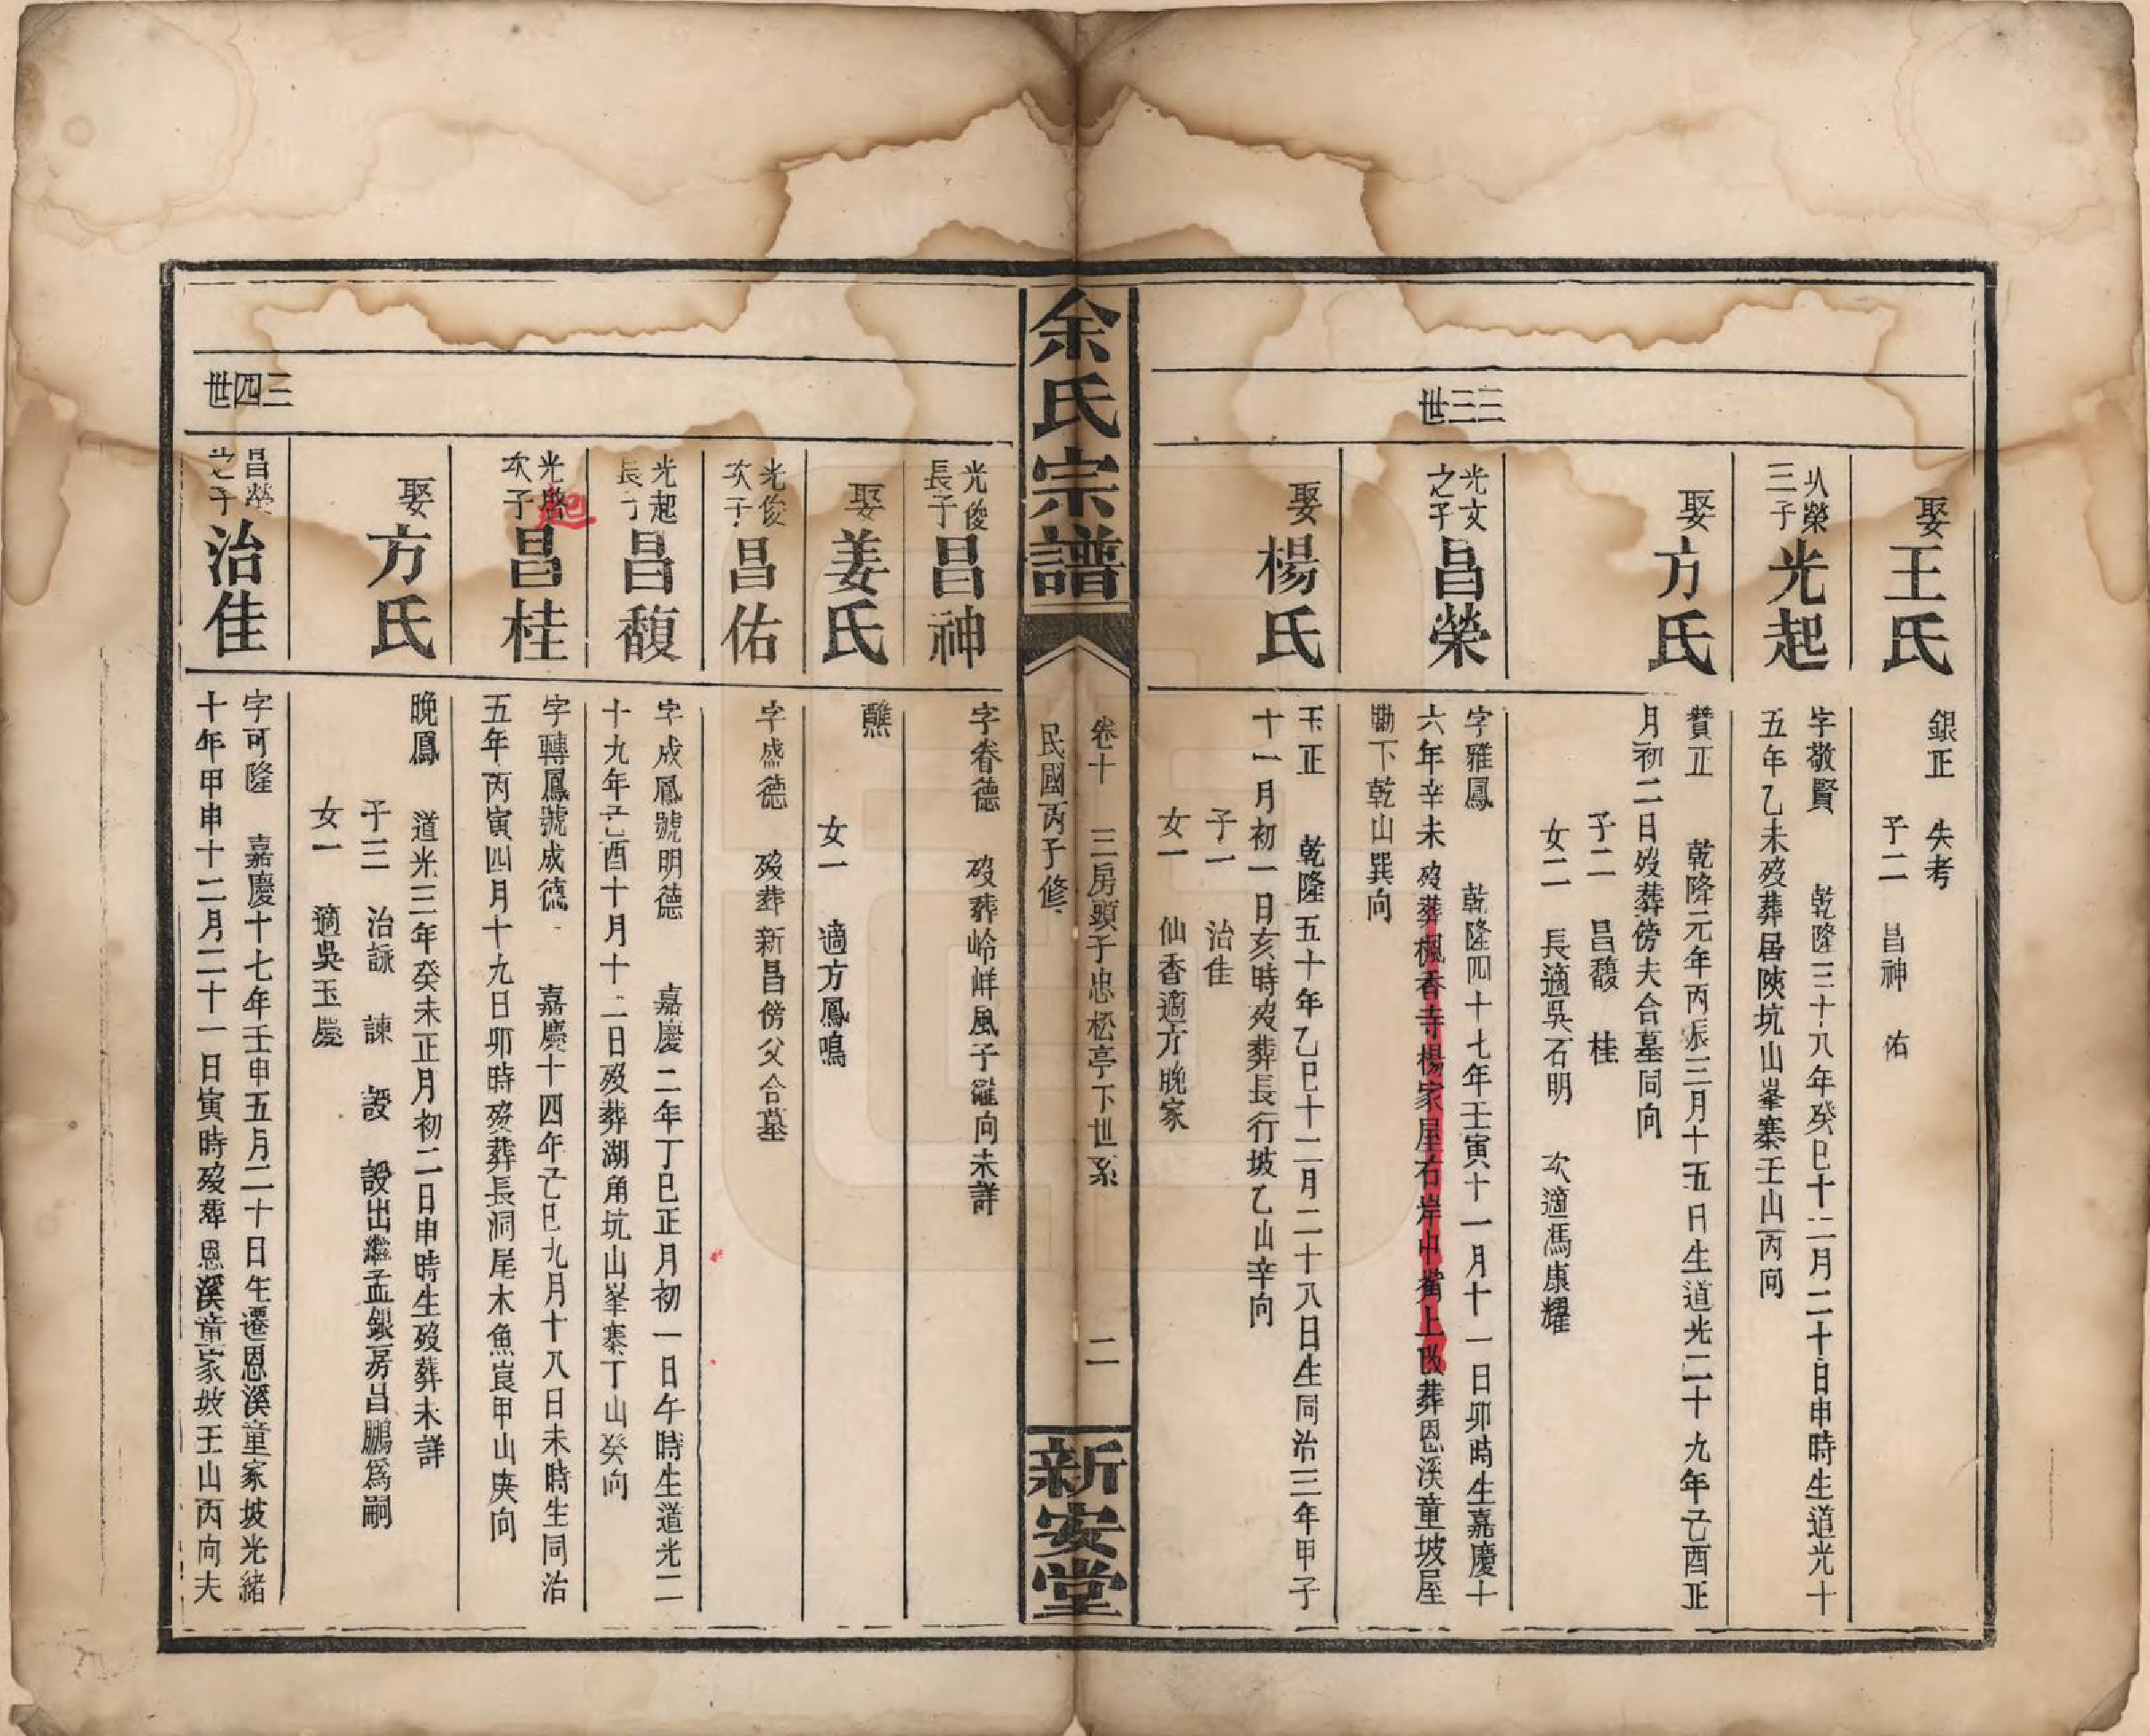 娶王氏
銀正 失考
子二 昌神 佑
三子
光起
字敬賢 乾隆三十八年癸巳十二月二十日申時生道光十
五年乙未歿葬居陝坑山峯寨壬山丙向
娶方氏
贊正 乾隆元年丙辰三月十五日生道光二十九年己酉正
月初二日歿葬傍夫合墓同向
子二 昌馥 桂
女二 長適吳石明 次適馮康耀
三三世
光文
之子
昌榮
字雅鳳 乾隆四十七年壬寅十一月十一日卯時生嘉慶十
六年辛未歿葬楓香寺楊家屋右岸中嘴上改葬恩溪童坡屋
勘下乾山巽向
娶楊氏
玉正 乾隆五十年乙巳十二月二十八日生同治三年甲子
十一月初一日亥時歿葬長行坡乙山辛向
子一 治佳
女一 仙香適方晚家
余氏宗譜
卷十 三房頭子忠松亭下世系 二
民國丙子修
新安堂
光俊
長子
昌神
字春德 歿葬岭㟁風子㘓向未詳
娶姜氏
醮
女一 適方鳳鳴
光俊
次子
昌佑
字盛德 歿葬新昌傍父合墓
光起
長子
昌馥
字成鳳號明德 嘉慶二年丁巳正月初一日午時生道光二
十九年己酉十月十二日歿葬湖角坑山峯寨丁山癸向
光啓
起
次子
昌桂
字轉鳳號成德 嘉慶十四年己巳九月十八日未時生同治
五年丙寅四月十九日卯時歿葬長洞尾木魚崀甲山庚向
娶方氏
晚鳳 道光三年癸未正月初二日申時生歿葬未詳
子三 治詠 諫 設 設出繼孟銀房昌鵬爲嗣
女一 適吳玉慶
三四世
昌榮
之子
治佳
字可隆 嘉慶十七年壬申五月二十日生遷恩溪童家坡光緒
十年甲申十二月二十一日寅時歿葬恩溪童家坡壬山丙向夫